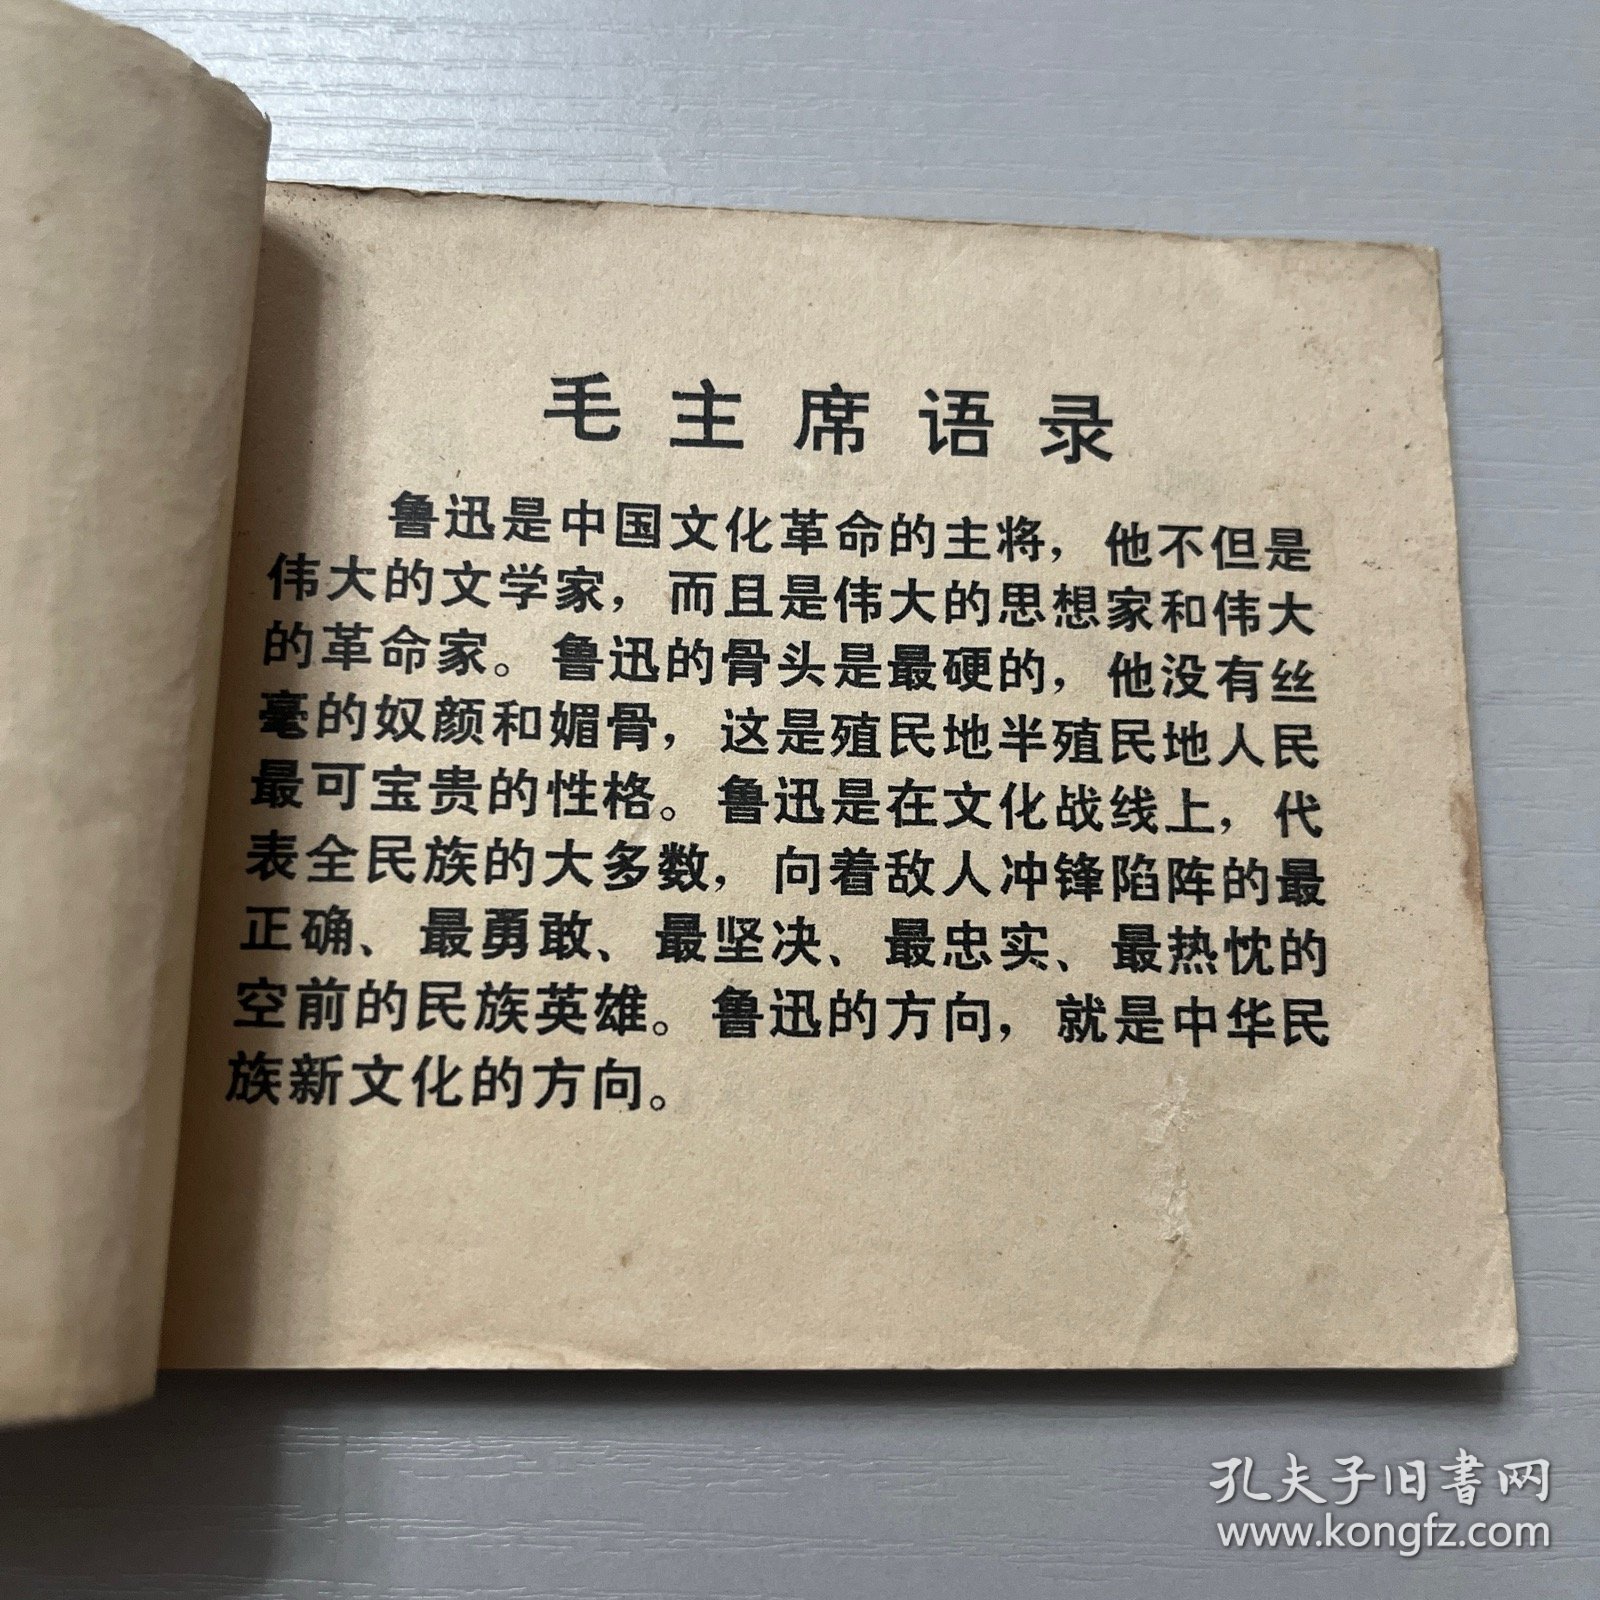 毛主席语录
鲁迅是中国文化革命的主将，他不但是
伟大的文学家，而且是伟大的思想家和伟大
的革命家。鲁迅的骨头是最硬的，他没有丝
毫的奴颜和媚骨，这是殖民地半殖民地人民
最可宝贵的性格。鲁迅是在文化战线上，代
表全民族的大多数，向着敌人冲锋陷阵的最
正确、最勇敢、最坚决、最忠实、最热忱的
空前的民族英雄。鲁迅的方向，就是中华民
族新文化的方向。
孔夫子旧书网
www.kongfz.com